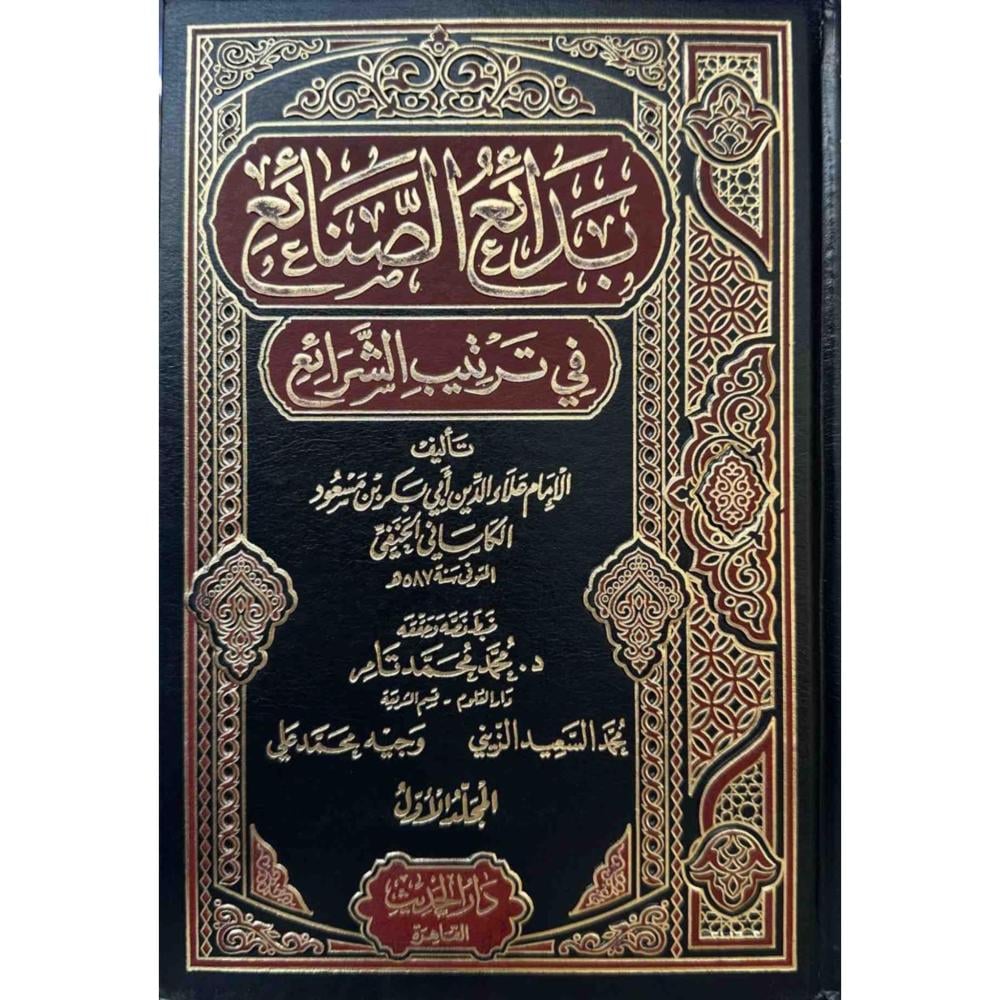 بَدَائِعُ الصَّنَائِعِ
فِي تَرْتِيبِ الشَّرَائِعِ
تأليف
الإمام علاء الدين أبي بكر بن مسعود
الكاساني الحنفي
المتوفى سنة ٥٨٧هـ
نصه وحققه
د. محمد محمد تامر
دار العلوم - قسم الشريعة
محمد السعيد الزيني وجيه محمد علي
المجلد الأول
دار الحديث
القاهرة